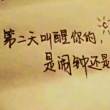 第二天叫醒你的，
是闹钟还是